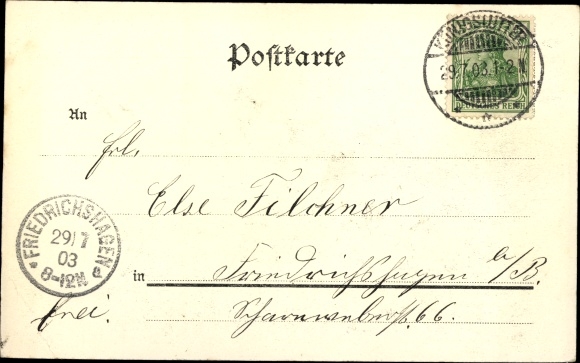 Postkarte
29.7.03.1-2N.
DEUTSCHES REICH
An
Frl.
Else Filchner
FRIEDRICHSHAGEN
29/7
03
8-12N.
in Friedrichshagen a/B.
frei! Scharnweberstr. 66.